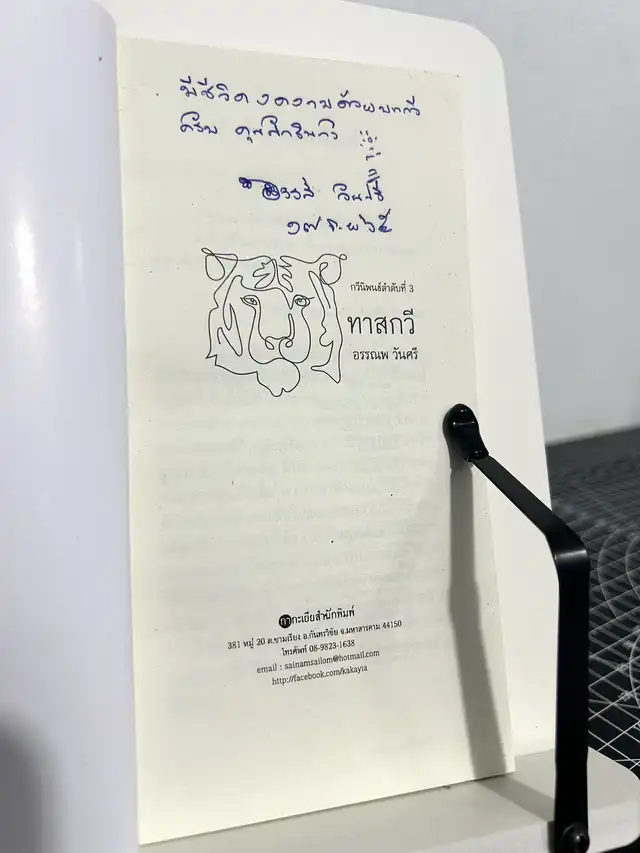 มีชีวิตงดงามด้วยบทกวี
ครับ คุณ
วันศรี
๑๗
กวีนิพนธ์ลำดับที่ 3
ทาสกวี
อรรณพ วันศรี
กากะเยียสำนักพิมพ์
381 หมู่ 20 ต.ขามเรียง อ.กันทรวิชัย จ.มหาสารคาม 44150
โทรศัพท์ 08-9823-1638
email : sainamsailom@hotmail.com
http://facebook.com/kakayia